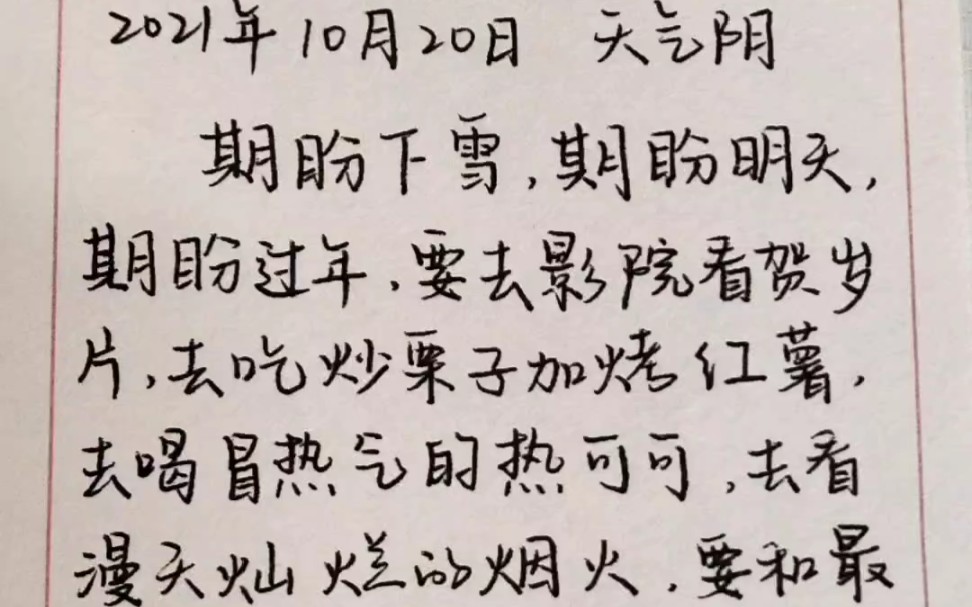 2021年10月20日 天气阴
期盼下雪,期盼明天,
期盼过年.要去影院看贺岁
片,去吃炒栗子加烤红薯,
去喝冒热气的热可可,去看
漫天灿烂的烟火.要和最